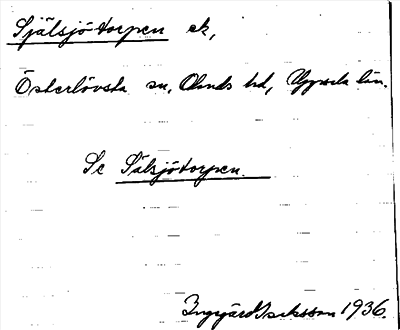 Själsjötorpen ek,
Österlövsta sn, Olands hd, Uppsala län.
Se Sälsjötorpen.
Ingegärd Isaksson 1936.